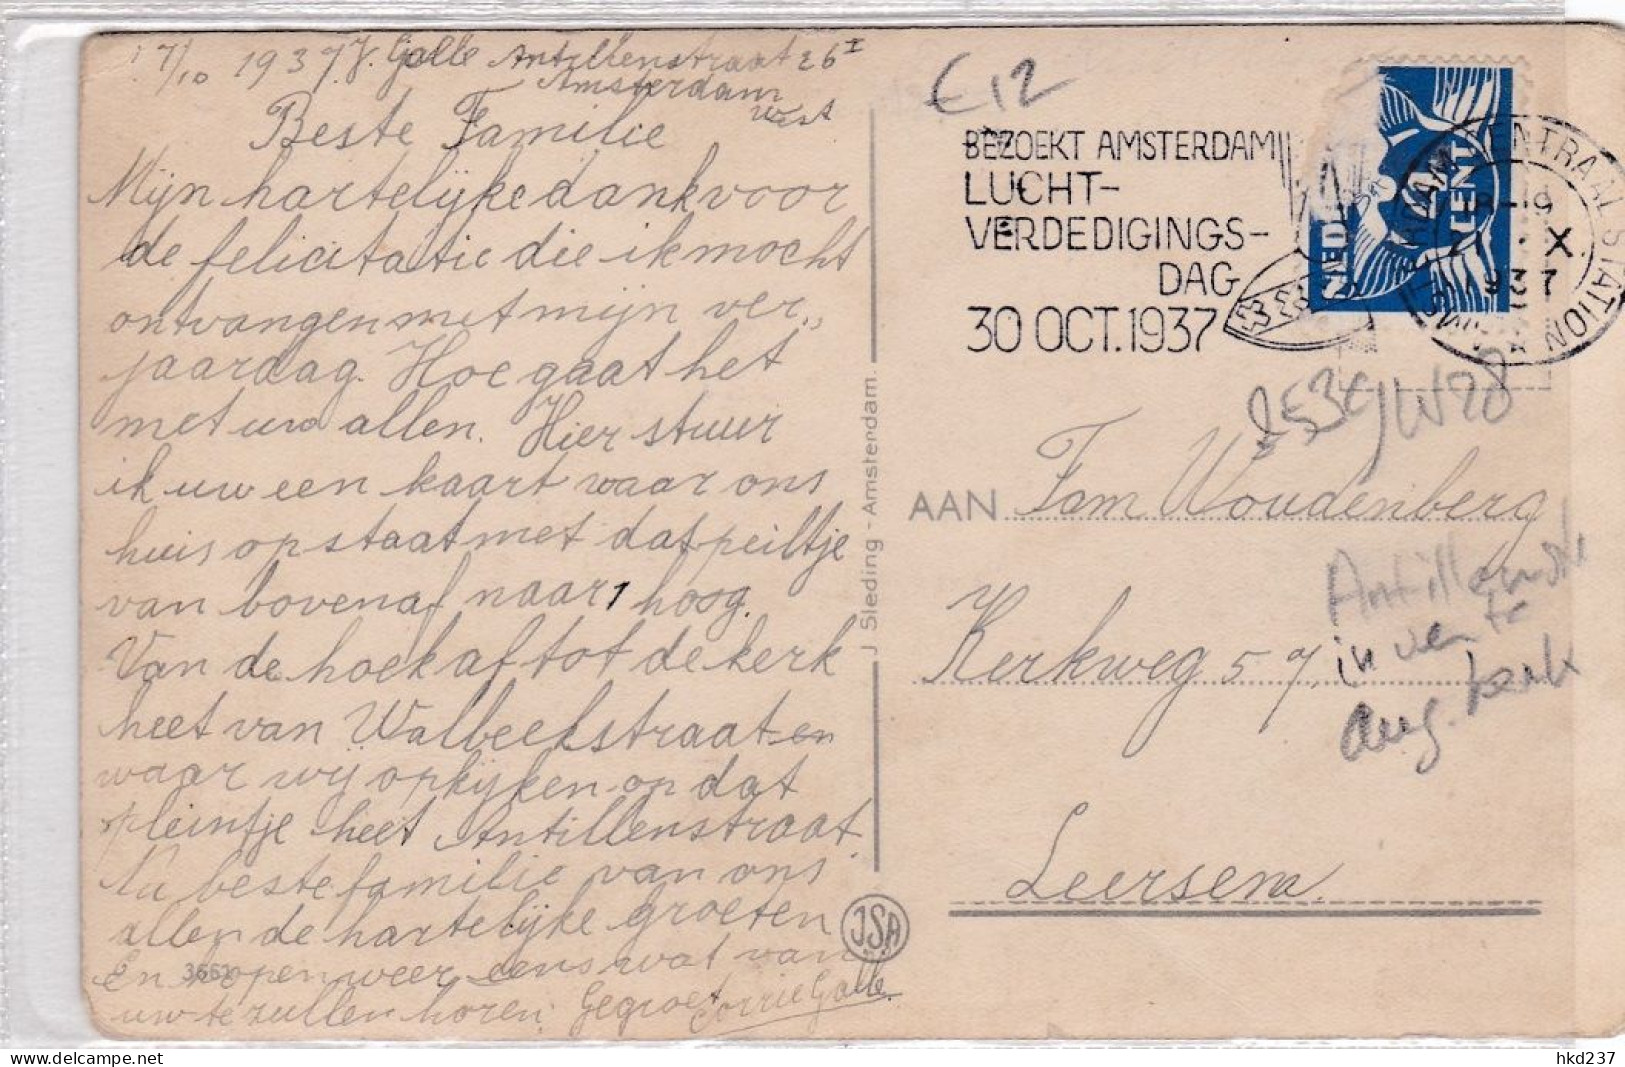 17/10 1937 J. Galle Antillenstraat 26 I
Amsterdam
west
Beste Familie
Mijn hartelijke dank voor
de felicitatie die ik mocht
ontvangen met mijn ver,,
jaardag. Hoe gaat het
met uw allen. Hier stuur
ik uw een kaart waar ons
huis op staat met dat peiltje
van bovenaf naar 1 hoog.
Van de hoek af tot de kerk
heet van Walbeekstraat en
waar wij op kijken op dat
pleintje heet Antillenstraat.
Nu beste familie van ons
allen de hartelijke groeten
En hopen weer eens wat van
uw te zullen horen. Gegroet
Corrie Galle.
3661
J Sleding - Amsterdam.
JSA
€ 12
BEZOEKT AMSTERDAM
LUCHT-
VERDEDIGINGS-
DAG
30 OCT. 1937
NED
TIEN CENT
AMSTERDAM CENTRAAL STATION
18-19
21 . X
1937
AAN Fam Woudenberg
Kerkweg 57,
Leersem.
Antillenstr
in ven te
Aug. kerk
hkd237
© www.delcampe.net